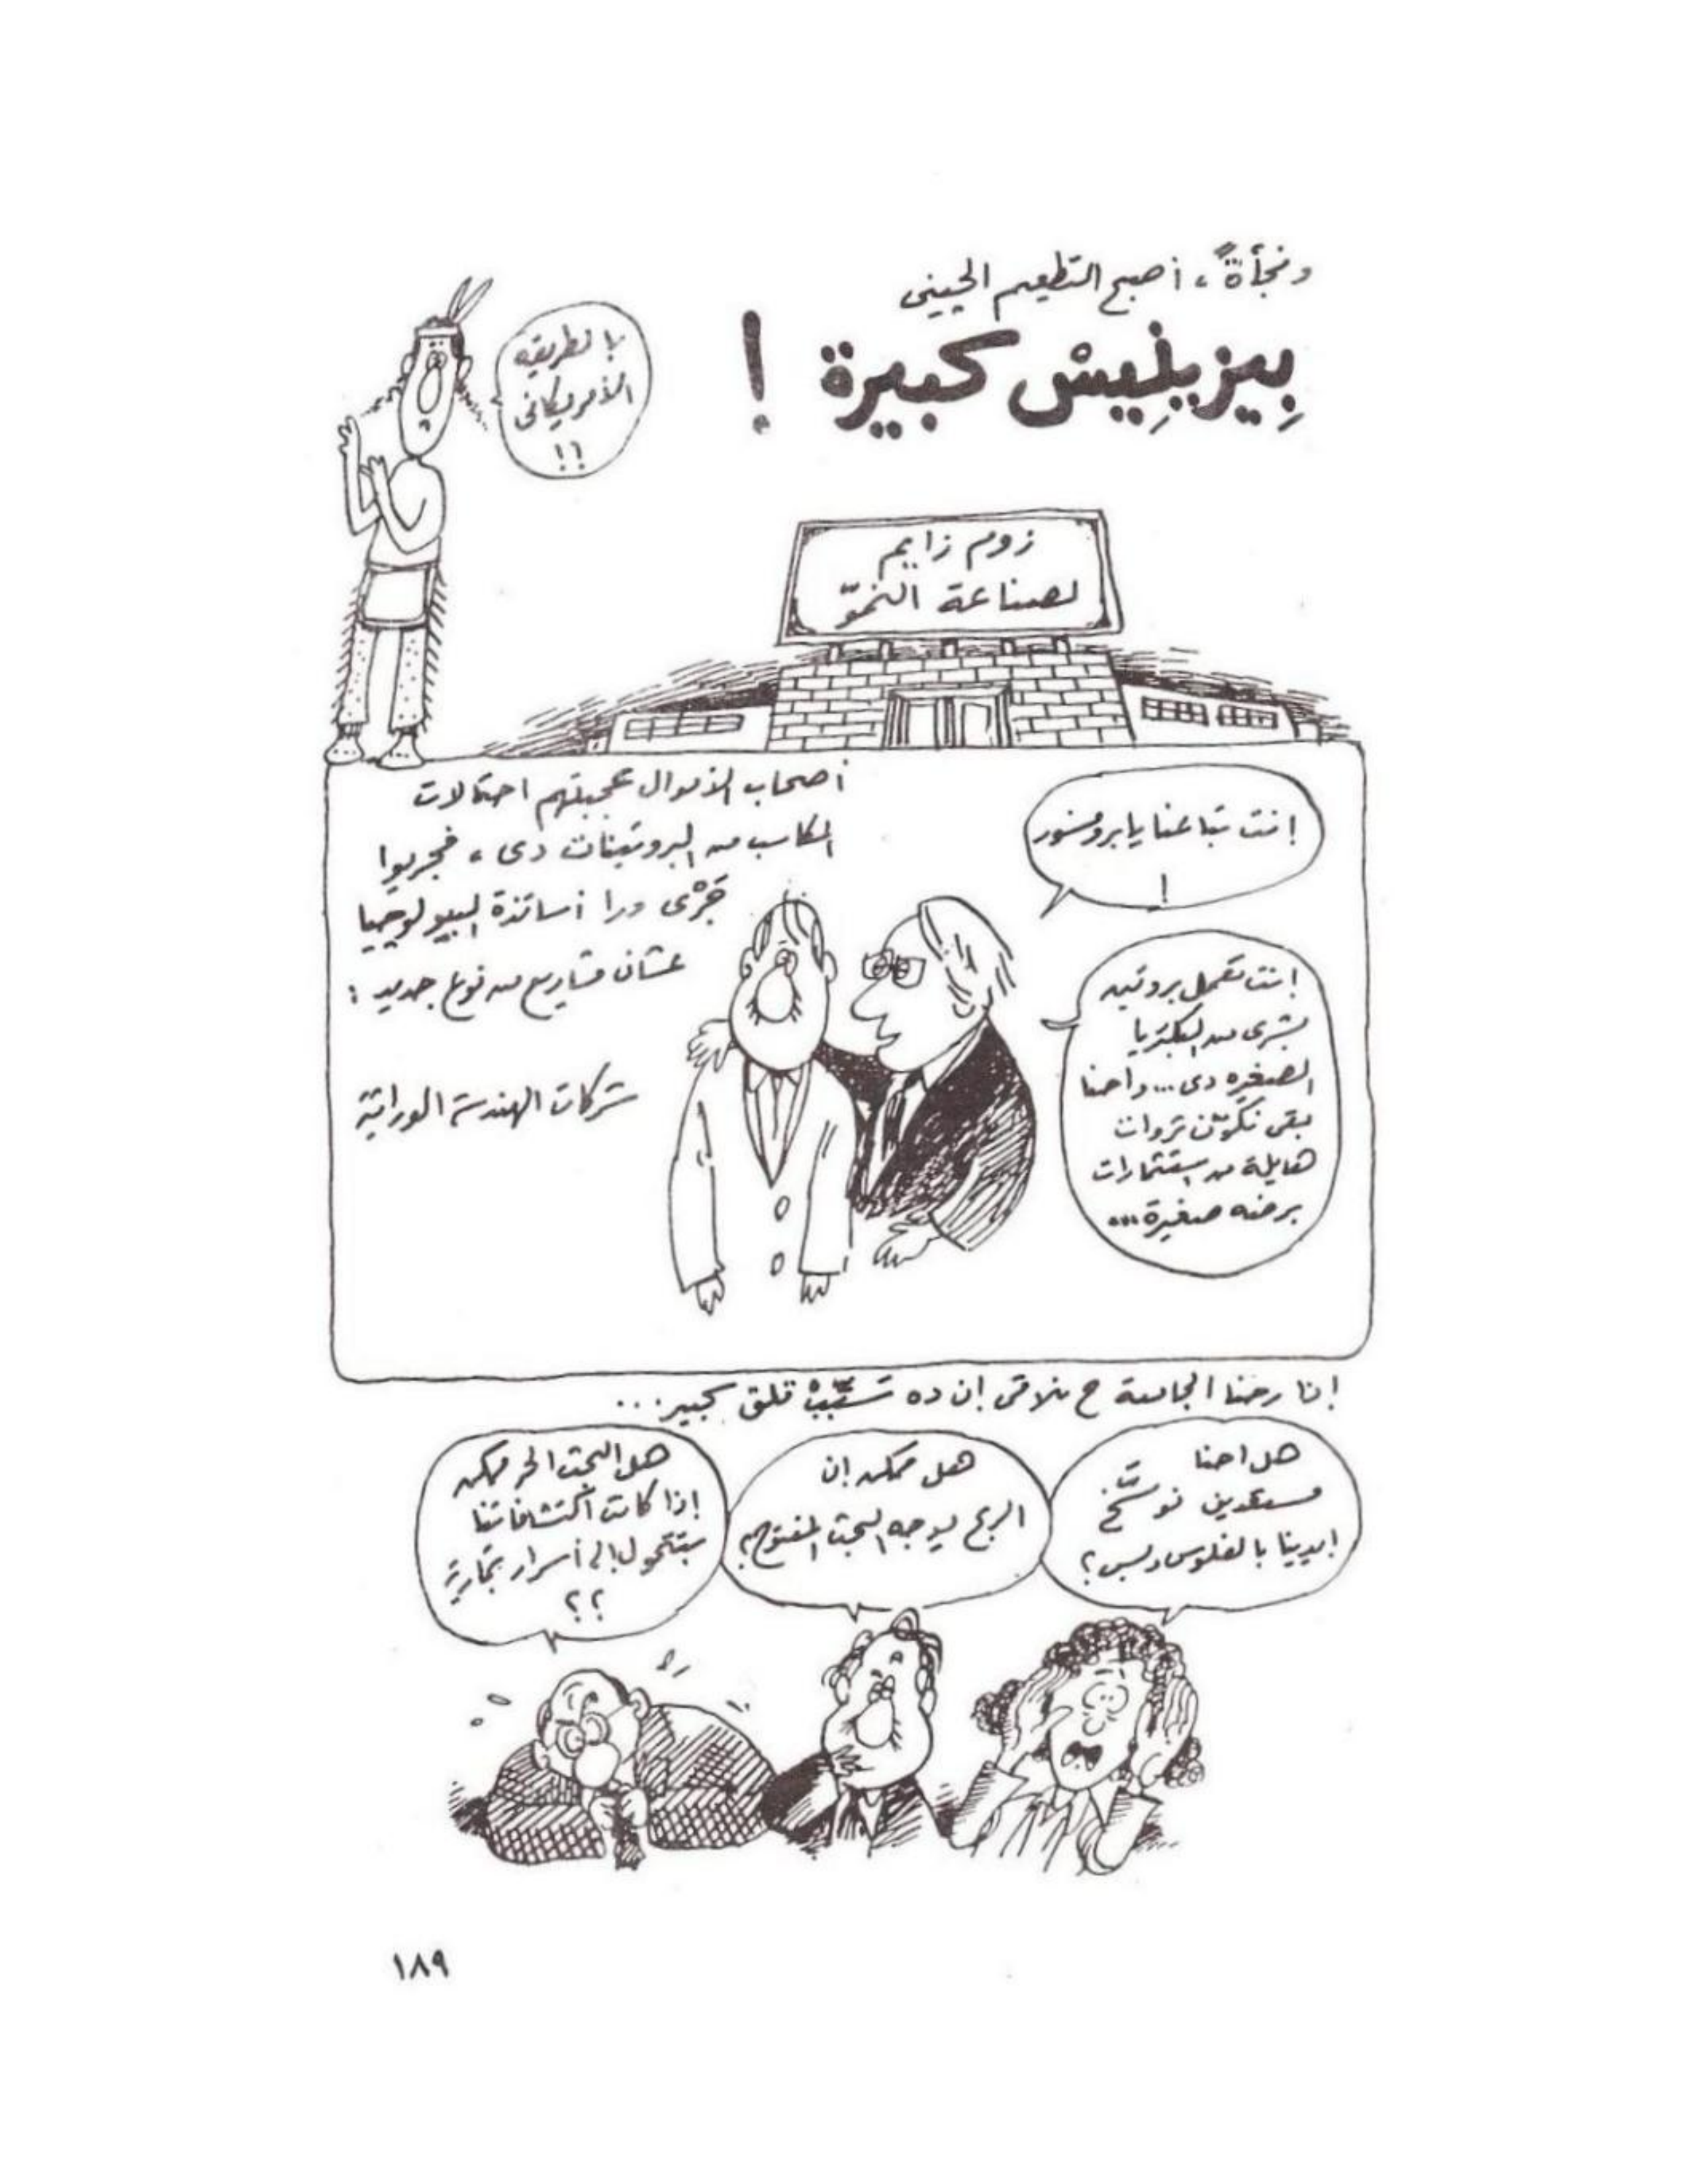 وفجأةً، أصبح التطعيم الجينى
بِيزينِيسْ كبيرة !
بالطريقه
الأمريكانى
!!
زوم زايم
لصناعة النموّ
أصحاب الأموال عجبتهم احتمالات
المكاسب من البروتينات دى، فجريوا
جَرْى ورا أساتذة البيولوجيا
عشان مشاريع من نوع جديد:
شركات الهندسة الوراثية
إنت بتاعنا يا بروفسور
!
إنت تعمل بروتين
بشرى من البكتريا
الصغيره دى... واحنا
بقى نكوّن ثروات
هايلة من استثمارات
برضه صغيرة...
إذا رحنا الجامعة ح نلاقى إن ده سَبِّبْ قلق كبير...
هل احنا
مستعدين نوسَّخ
إيدينا بالفلوس وبس؟
هل ممكن إن
الربح يوجه البحث المفتوح؟
هل البحث الحر ممكن
إذا كانت اكتشافاتنا
بتتحول إلى أسرار تجارية
؟؟
١٨٩